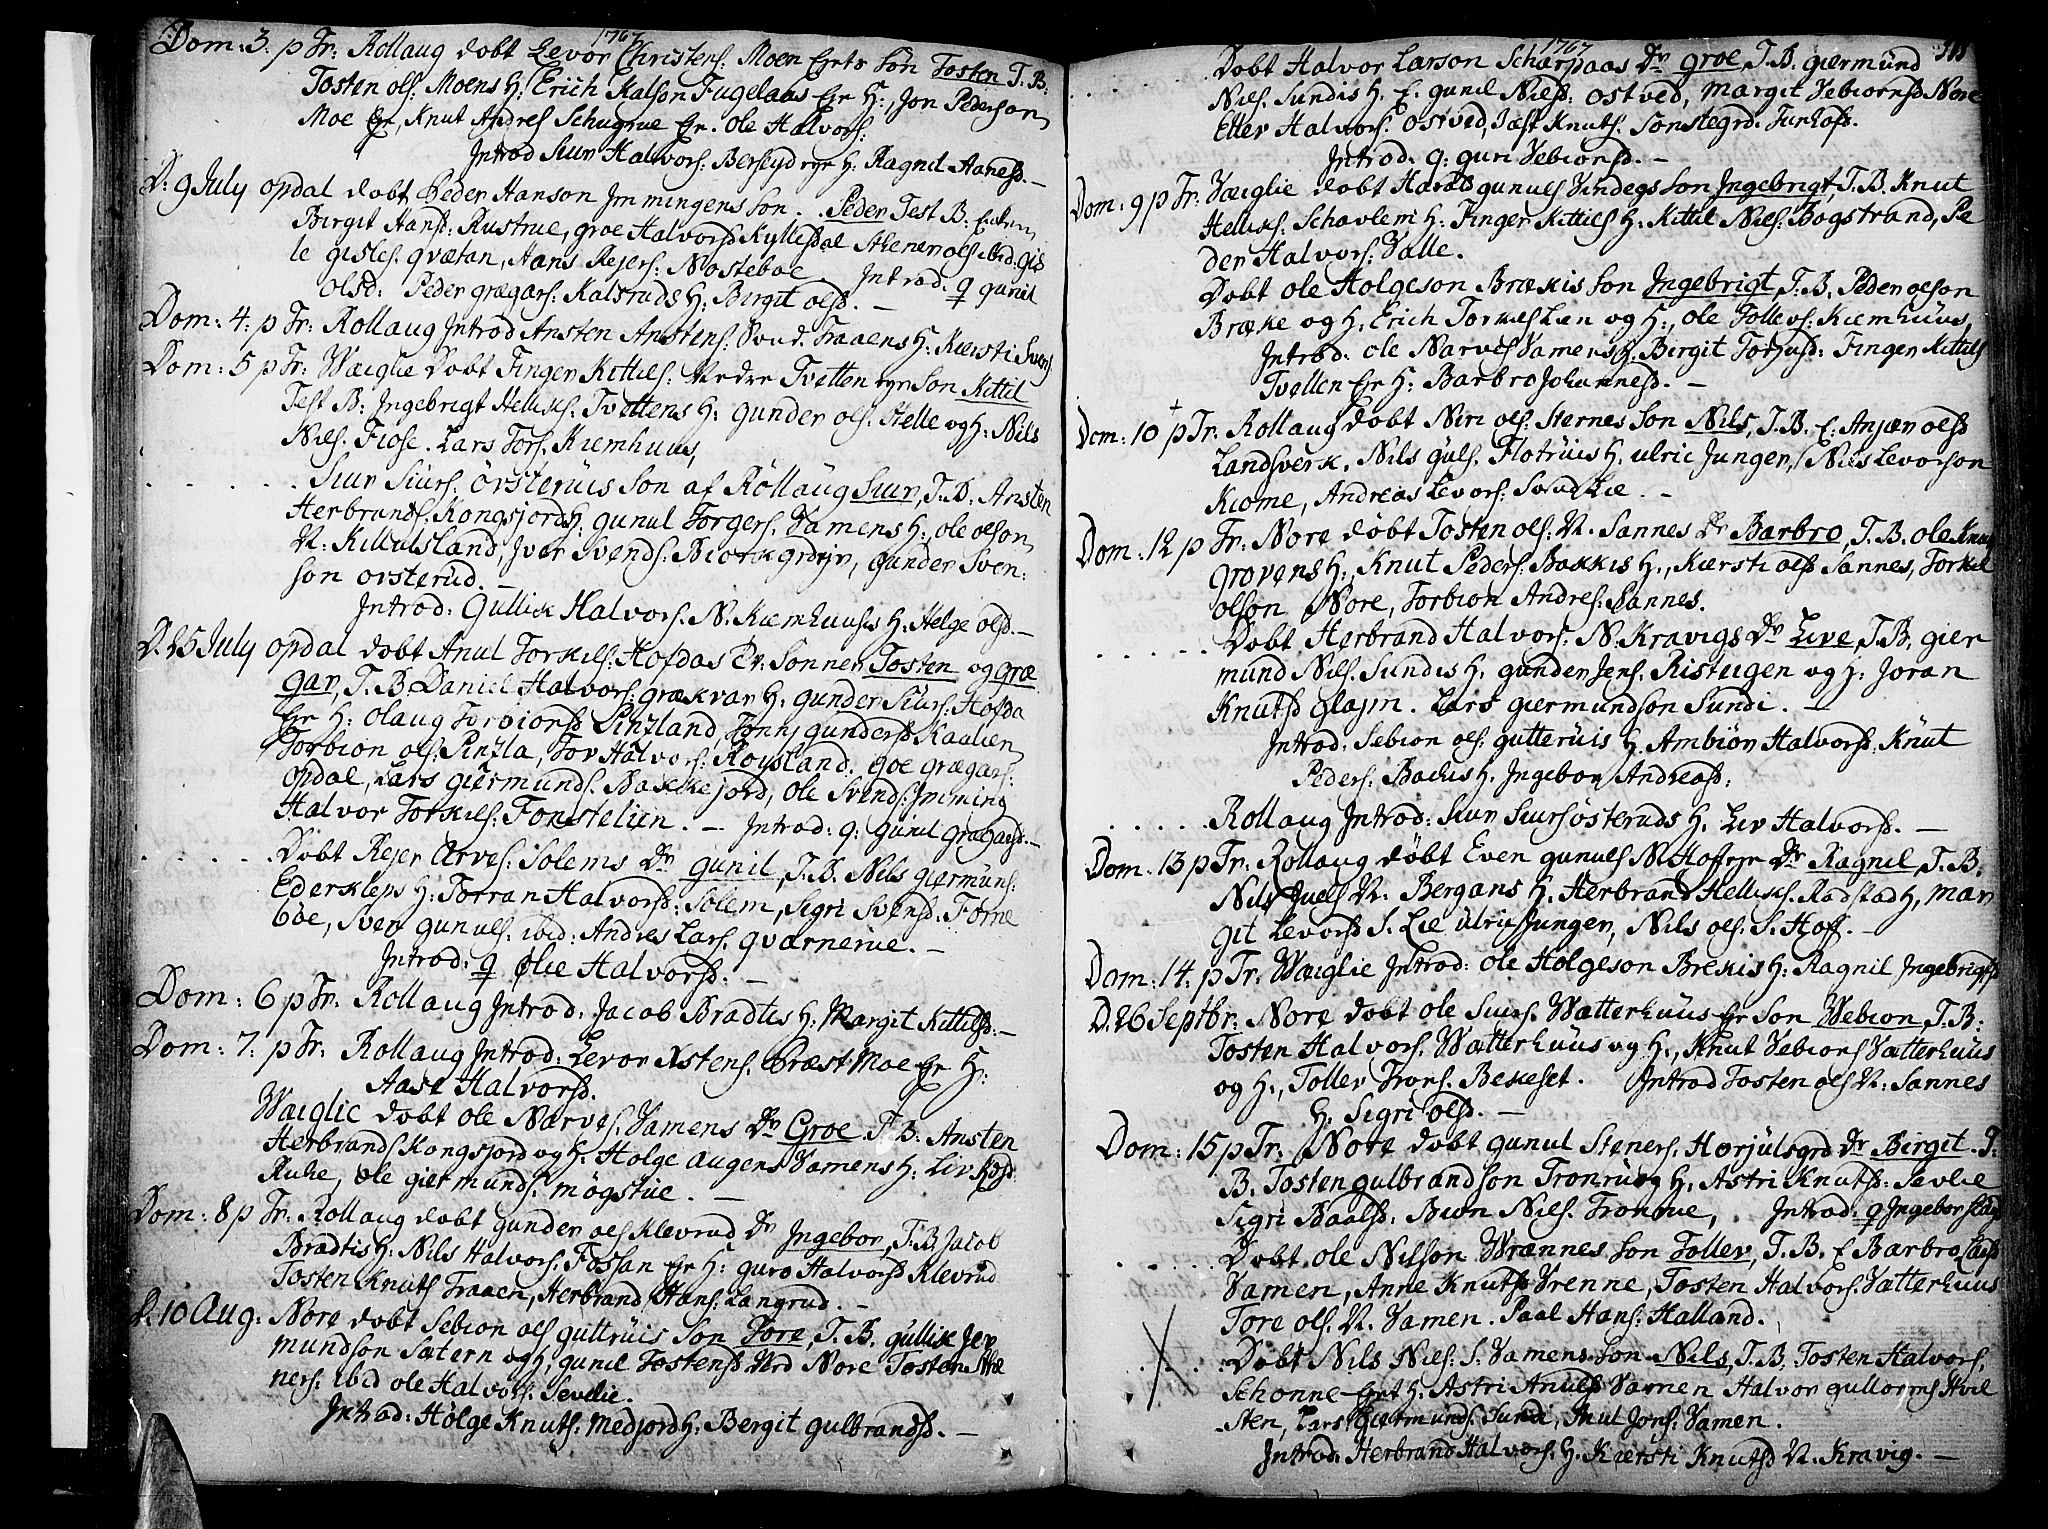 1767
Dom: 3. p Tr: Rollaug dobt Levor Christens: Moen Ejrts Søn Tosten T. B:
Tosten ols: Moens H: Erich Kalson Fugelaas Ejr H:, Jon Pederson
Moe Ejr, Knut Andres Ejr. Ole Halvors:
Introd Siur Halvors: H: Ragnil Aanesd. —
D: 9 July Opdal dobt Peder Hanson Immingens son. Peder Test B:
Birgit Hansd: Rustrue, groe Halvorsd Kyllesdal ols ibid: Gis
le gisles. qvætan, Hans Rejers: Nosteboe. Introd: q gunil
olsd: Peder grægars: Kalsruds H: Birgit olsd. —
Dom: 4: p Tr: Rollaug Introd Ansten Anstens: Traaens H: Kiersti Svens
Dom: 5 p Tr: Wæglie Dobt Finger Kittils: Nedre Tvetten ejr Son Kittil
Test B: Ingebrigt Helliks. Tvettens H: gunder ols. Stelle og H: Nils
Niels. Fiose. Lars Tors. Kiemhuus,
. . . . . . Siur Siurs: Örsteruis Son af Rollaug Siur, T. B. Ansten
Herbrands: Kongsjords H: gunul Torgers. Vamens H:, ole olson
N: Killulsland, Iver Svends: Biorkgrdejr, gunder Sven:
son orsterud. —
Introd: Gullik Halvors. N. Kiemhuuses H: Helge olsd. —
D. 25 July Opdal dobt Anul Torkils: Hofdas Sønner Tosten og græ
gar, T. B. Daniel Halvors: grækvar H: gunder Siurs: Hofda
Ejr H: olaug Torbiorsd Pintzland, Tonnj gundersd Kaalien
Torbion ols: Pintzla, Tor Halvors: Roysland. goe grægars:
Opdal, Lars giermunds. Bakkejord, Ole Svends: Imming
Halvor Torkils: Fonstelien. — Introd: q: gunil gragarsd. —
. . . . . . Dobt Rejer Arves: Solems Dr gunil, T. B. Nils giermuns:
H: Torran Halvorsd: Solem, Sigri Svensd. Torne
boe, Sven gunuls. ibid: Andres Lars. qvarnerue. —
Introd: q Olie Halvorsd. —
Dom: 6 p Tr. Rollaug Introd. Jacob Bradtis H: Margit Kittilsd: —
Dom: 7: p Tr: Rollaug Introd: Levor Xstens. Præst Moe Ejr H:
Aase Halvorsd.
Wæglie dobt ole Narves. Vamens Dr Groe. T. B. Ansten
Herbrands Kongsjord og H. Holge augens Vamens H: Liv
Ruhe, ole giermunds: møgstue. —
Dom: 8 p Tr: Rollaug dobt gunder ols Klevrud Dr Ingebor, T. B. Jacob
Bradtis H: Nils Halvors. Fossan Ejr H: guro Halvorsd Klevrud
Tosten Knuts Traaen, Herbrand Hans. Langrud. —
D. 10 Aug: Nore dobt Sebion ols guttruis Son Tore, T. B. gullik Jer
mundson Sætern og H, gunil Tostensd Nore Tosten
ners: ibid ole Halvors. Sevlie.
Introd: Holge Knuts: Medjord H: Bergit gulbrandsd. —
1767
Dobt Halvor Larson Scharpaas Dr groe, T. B. giermund
Niels. Sundis H. E. gunil Nielsd: Ostved, Margit Vebionsd Nore
Eller Halvors: Ostved, Knuts. Sønstegrd.
Introd: q: guri Vebionsd. —
Dom: 9 p Tr: Væiglie dobt Harald gunuls Vindegs Son Ingebrigt, T. B. Knut
Helliks: Schavlem H: Finger Kittils H: Kittil Niels: Bogstrand, Pe
der Halvors: Valle.
Dobt ole Holgeson Brækis Son Ingebrigt, T. B. Peder olson
Bræke og H. Erich Torkels Lien og H:, ole Tollevs: Kiemhuus,
Introd: ole Narves Vamens H: Birgit Torjusd: Finger Kittils
Tvetten Ejr H: Barbro Johannesd. —
Dom: 10 p Tr: Rollaug dobt Niri ols: Sternes Son Nils, T. B. E. Anjær olsd
Landsverk, Nils guls. Flotruis H, ulric Junger, Nils Levorson
Kiome, Andreas Levors: Lie. —
Dom: 12 p Tr: Nore dobt Tosten ols: N. Sannes Dr Barbro, T. B. ole
grovens H:, Knut Peders: Bakkis H., Kiersti olsd Sannes, Torkil
olson Nore, Torbion Andres: Sannes.
. . . . . Dobt Herbrand Halvors: N. Kravigs Dr Live, T. B. gier
mund Niels. Sundis H. gunder Jens. Risteigen og H: Joran
Knutsd Glajm. Lars giermundson Sundi. —
Introd: Sebion ols: gutteruis H, Ambior Halvorsd. Knut
Peders: Backis H. Ingebor Andreasd:
. . . . . Rollaug Introd: Siur Siursösteruds H. Liv Halvorsd. —
Dom: 13 p Tr: Rollaug dobt Even gunuls N. Hoffs Dr Ragnil, T. B.
Nils Juels N. Bergans H, Herbrand Helliks. Rodstad H, mar
git Levorsd S. Lie ulric Junger, Nils ols. S. Hoff. —
Dom: 14: p Tr: Wæiglie Introd: ole Holgeson Brekis H: Ragnil Ingebrigtsd
D. 26 Septbr: Nore dobt ole Suurs: Wætterhuus Ejr Son Webion, T. B:
Tosten Halvors. Wætterhuus og H:, Knut Vebiors Vatterhuus
og H:, Tollev Trons. Bekeset. Introd Tosten ols N: Sannes
H. Sigri olsd. —
Dom: 15 p Tr: Nore dobt gunul Steners. Horjulsgrd Dr Birgit. T:
B. Tosten gulbrandson Tronrud og H. Astri Knutsd: Sevlie
Sigri Baalsd: Bion Niels. Tronrue, Introd: q Ingebor
. . . . . Dobt. ole Nilsson Wrænnes Son Tollev, T. B. E Barbro Larsd
Vamen, Anne Knutsd Vrenne, Tosten Halvors. Vatterhuus
Tore ols. N. Vamen. Paal Hans: Halland.
X . . . Dobt Nils Niels: S: Vamens Son Nils, T. B. Tosten Halvors.
Schonne Ejrt H: Astri Anulsd Vamen Halvor gullorms Hvil
sten, Lars Giermunds. Sundi, Anul Jons: Vamen.
Introd: Herbrand Halvors: H. Kiersti Knutsd N. Kravig. —